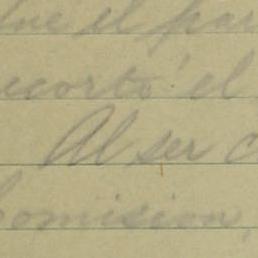 que el par
ecorto el
Al ser c
comision,